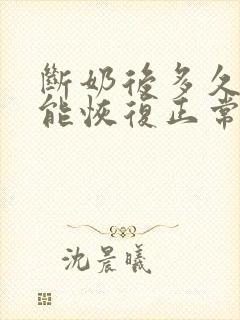 斷奶後多久
能恢復正常
沈晨曦